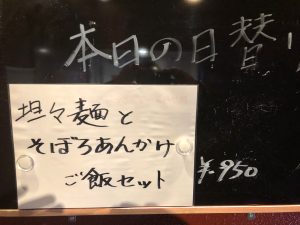 本日の日替
坦々麺と
そぼろあんかけ
ご飯セット
¥950